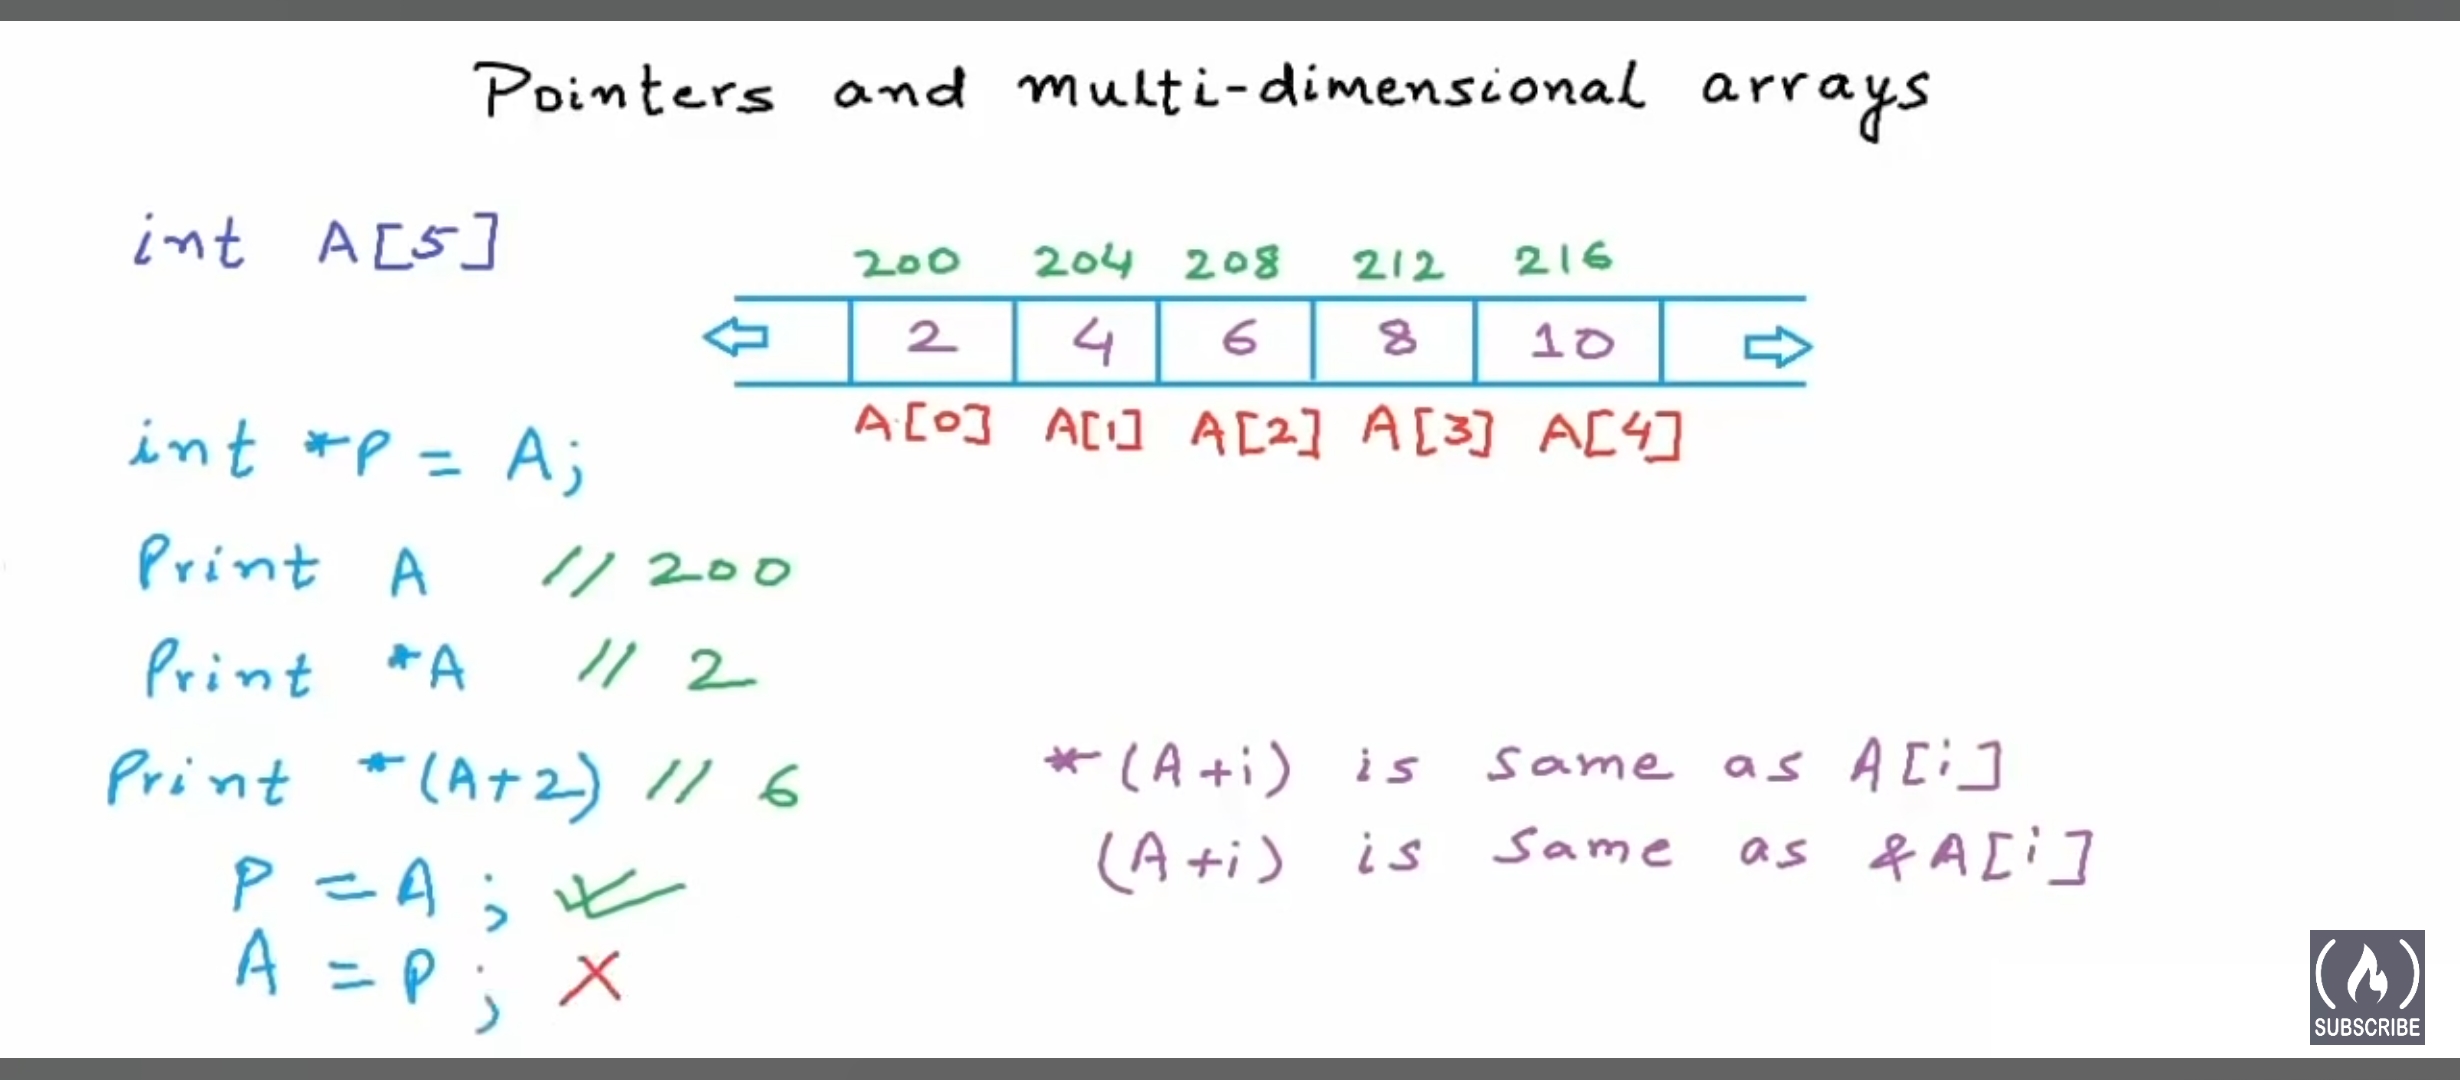 Pointers and multi-dimensional arrays
int A[5]
200 204 208 212 216
2 4 6 8 10
A[0] A[1] A[2] A[3] A[4]
int *P = A;
Print A // 200
Print *A // 2
Print *(A+2) // 6
*(A+i) is same as A[i]
(A+i) is same as &A[i]
P = A;
A = P;
SUBSCRIBE